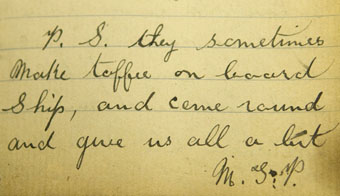 P. S. they sometimes
Make toffee on board
Ship, and come round
and give us all a bit
M. S. P.